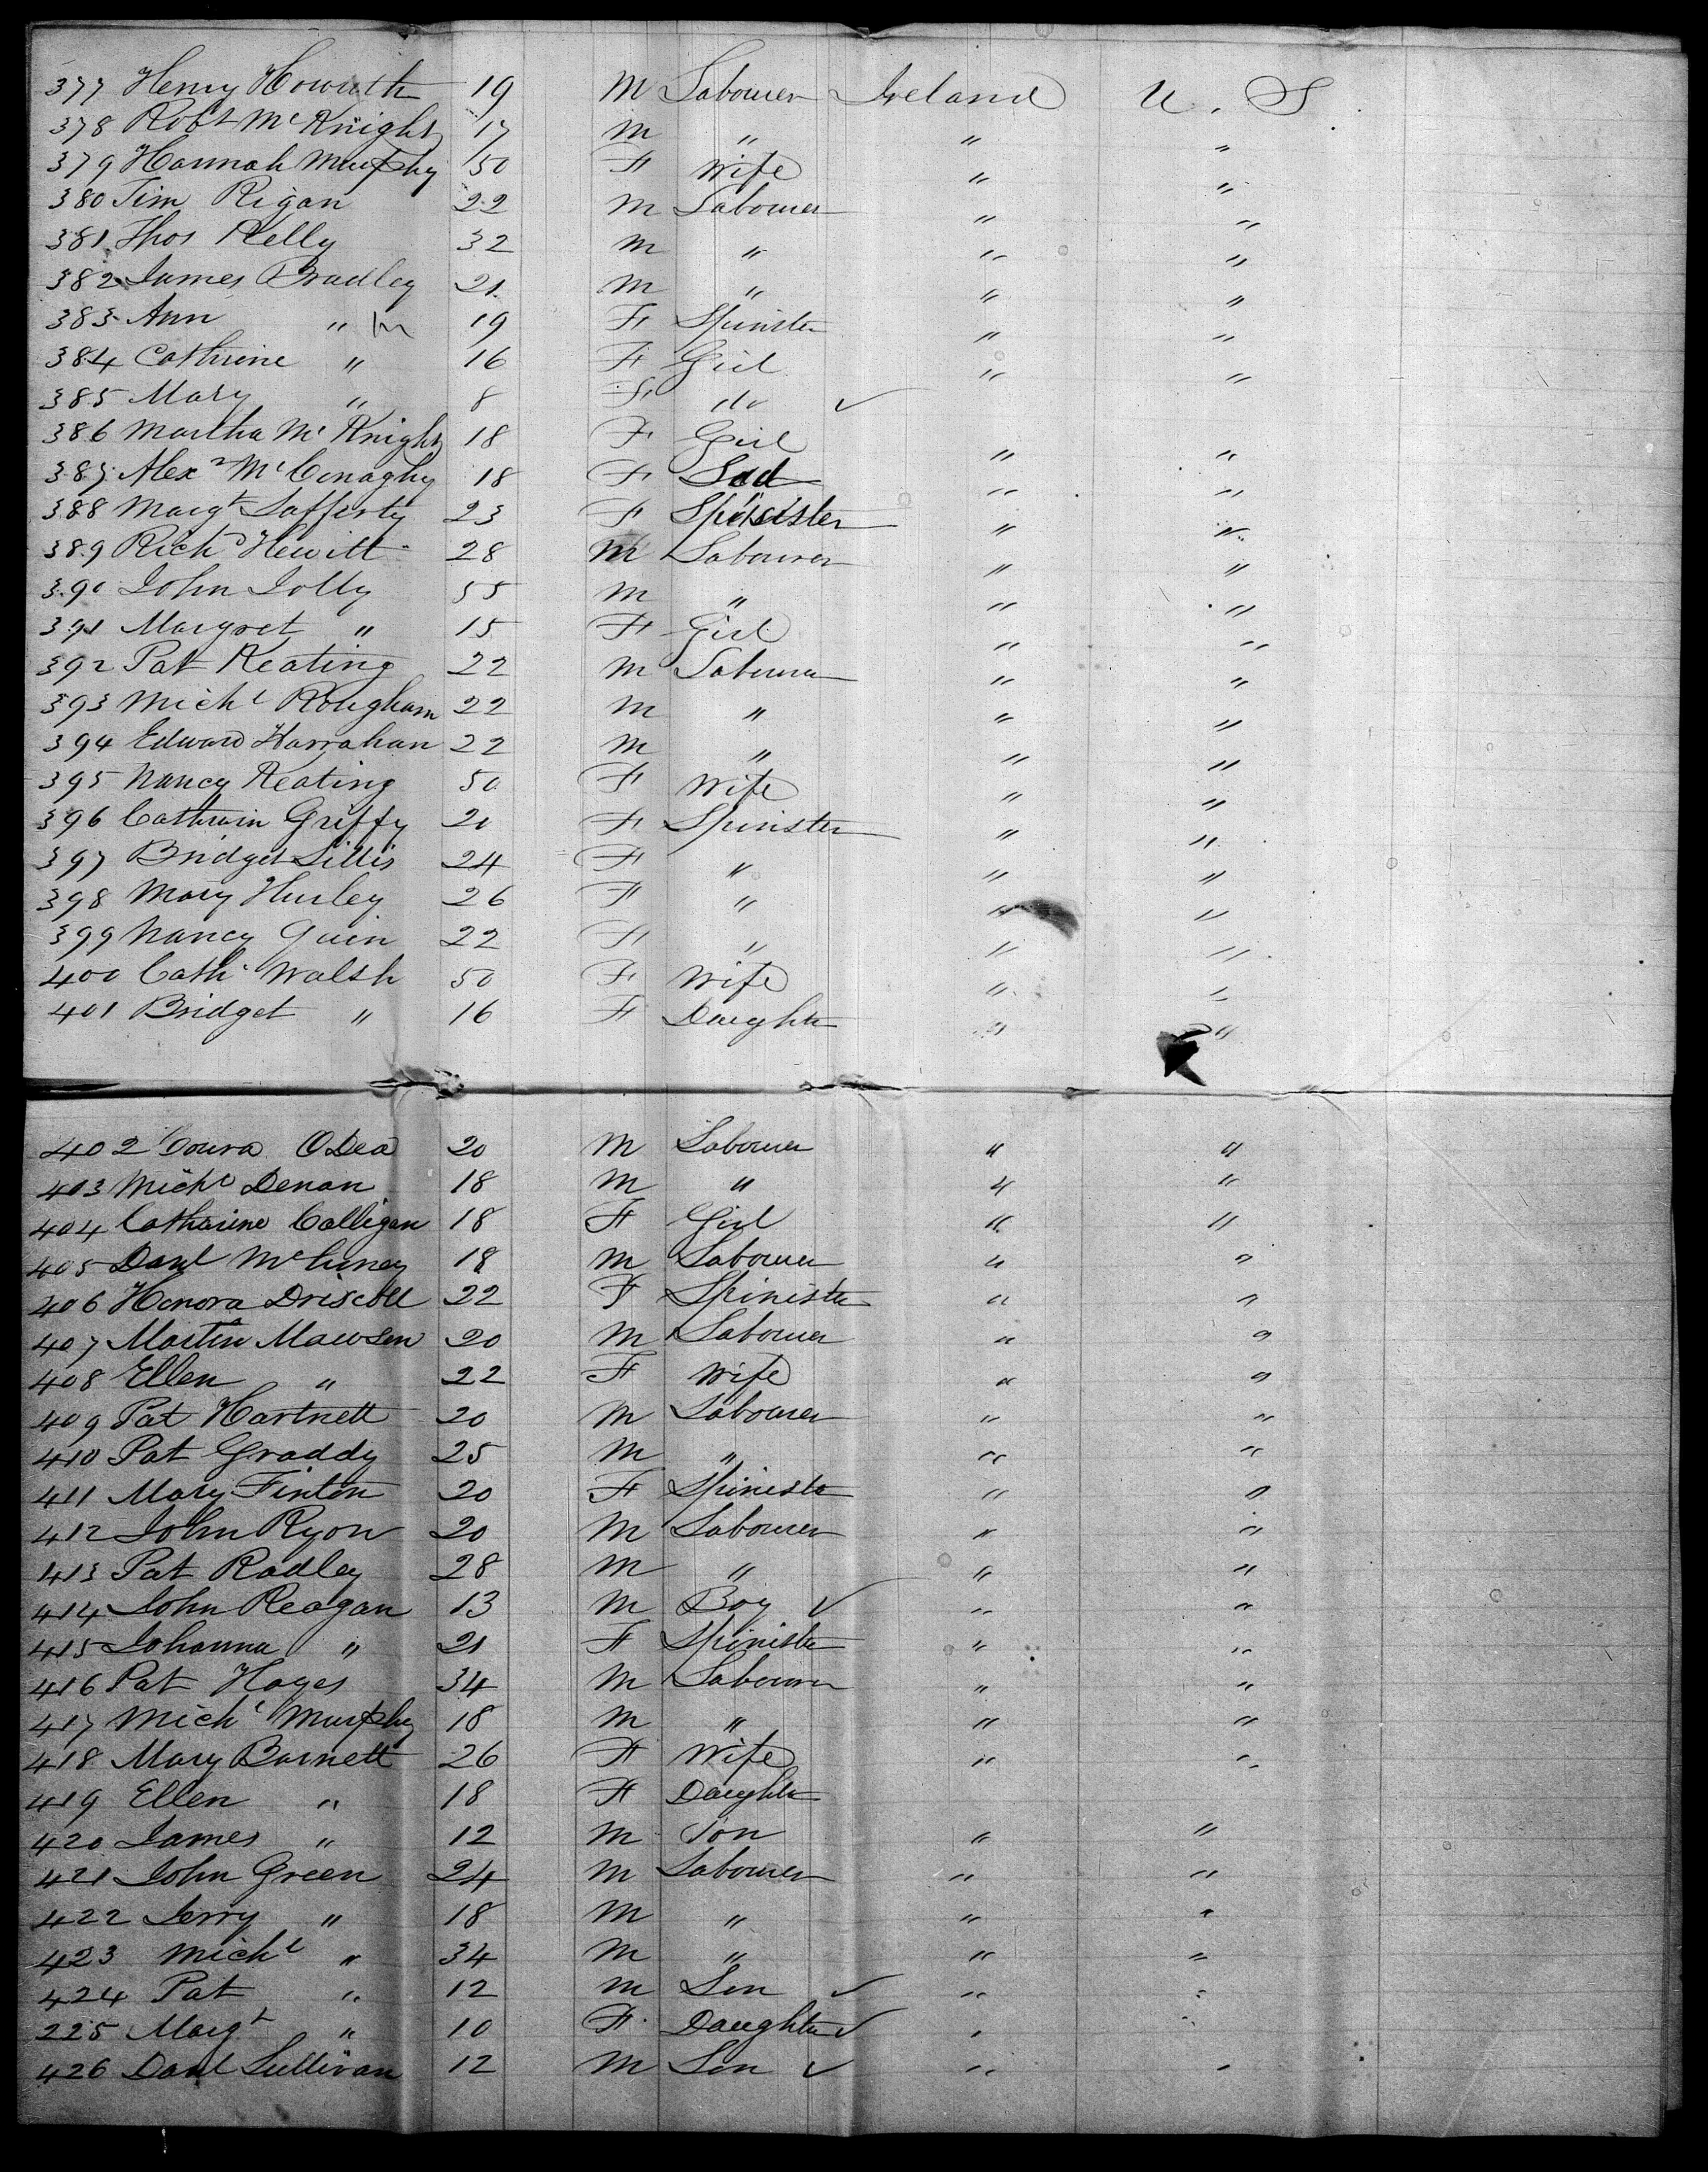 377 Henry Howrath 19 M Labourer Ireland U. S.
378 Robt McKnight 17 M " " "
379 Hannah Murphy 50 F Wife " "
380 Tim Rigan 22 M Labourer " "
381 Thos Kelly 32 M " " "
382 James Bradley 21 M " " "
383 Ann " 19 F Spinster " "
384 Cathrine " 16 F Girl " "
385 Mary " 8 F do ✓
386 Martha McKnight 18 F Girl " "
387 Alexr McConaghy 18 F Lad " "
388 Margt Lafferty 23 F Spinster " "
389 Richd Hewitt 28 M Labourer " "
390 John Jolly 55 M " " "
391 Margret " 15 F Girl " "
392 Pat Keating 22 M Labourer " "
393 Michl Rougham 22 M " " "
394 Edward Harrahan 22 M " " "
395 Nancy Keating 50 F Wife " "
396 Cathrin Griffy 20 F Spinster " "
397 Bridget Lillis 24 F " " "
398 Mary Hurley 26 F " " "
399 Nancy Guin 22 F " " "
400 Cath. Walsh 50 F Wife " "
401 Bridget " 16 F Daughter " "
402 ODea 20 M Labourer " "
403 Michl Denan 18 M " " "
404 Catharine Calligan 18 F Girl " "
405 Danl 18 M Labourer " "
406 Honora Driscoll 22 F Spinister " "
407 Martin Mawsen 20 M Labourer " "
408 Ellen " 22 F Wife " "
409 Pat Hartnett 20 M Labourer " "
410 Pat Graddy 25 M " " "
411 Mary Finton 20 F Spinister " "
412 John Ryon 20 M Labourer " "
413 Pat Radley 28 M " " "
414 John Reagan 13 M Boy ✓ " "
415 Johanna " 21 F Spinister " "
416 Pat Hayes 34 M Labourer " "
417 Michl Murphy 18 M " " "
418 Mary Barnett 26 F Wife " "
419 Ellen " 18 F Daughter
420 James " 12 M Son " "
421 John Green 24 M Labourer " "
422 Jerry " 18 M " " "
423 Michl " 34 M " " "
424 Pat " 12 M Son ✓ " "
225 Margt " 10 F Daughter ✓ " "
426 Danl Sullivan 12 M Son ✓ " "